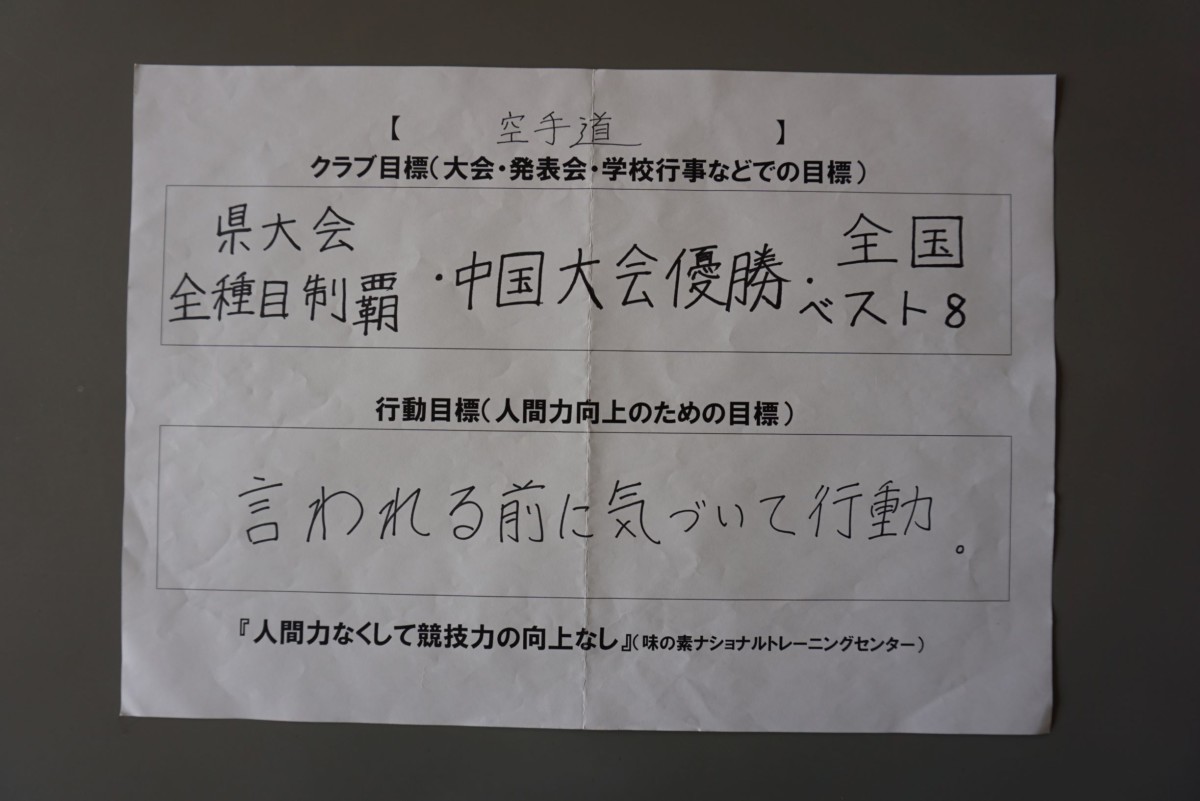 【 空手道 】
クラブ目標（大会・発表会・学校行事などでの目標）
県大会
全種目制覇
・中国大会優勝・
全国
ベスト8
行動目標（人間力向上のための目標）
言われる前に気づいて行動。
『人間力なくして競技力の向上なし』（味の素ナショナルトレーニングセンター）